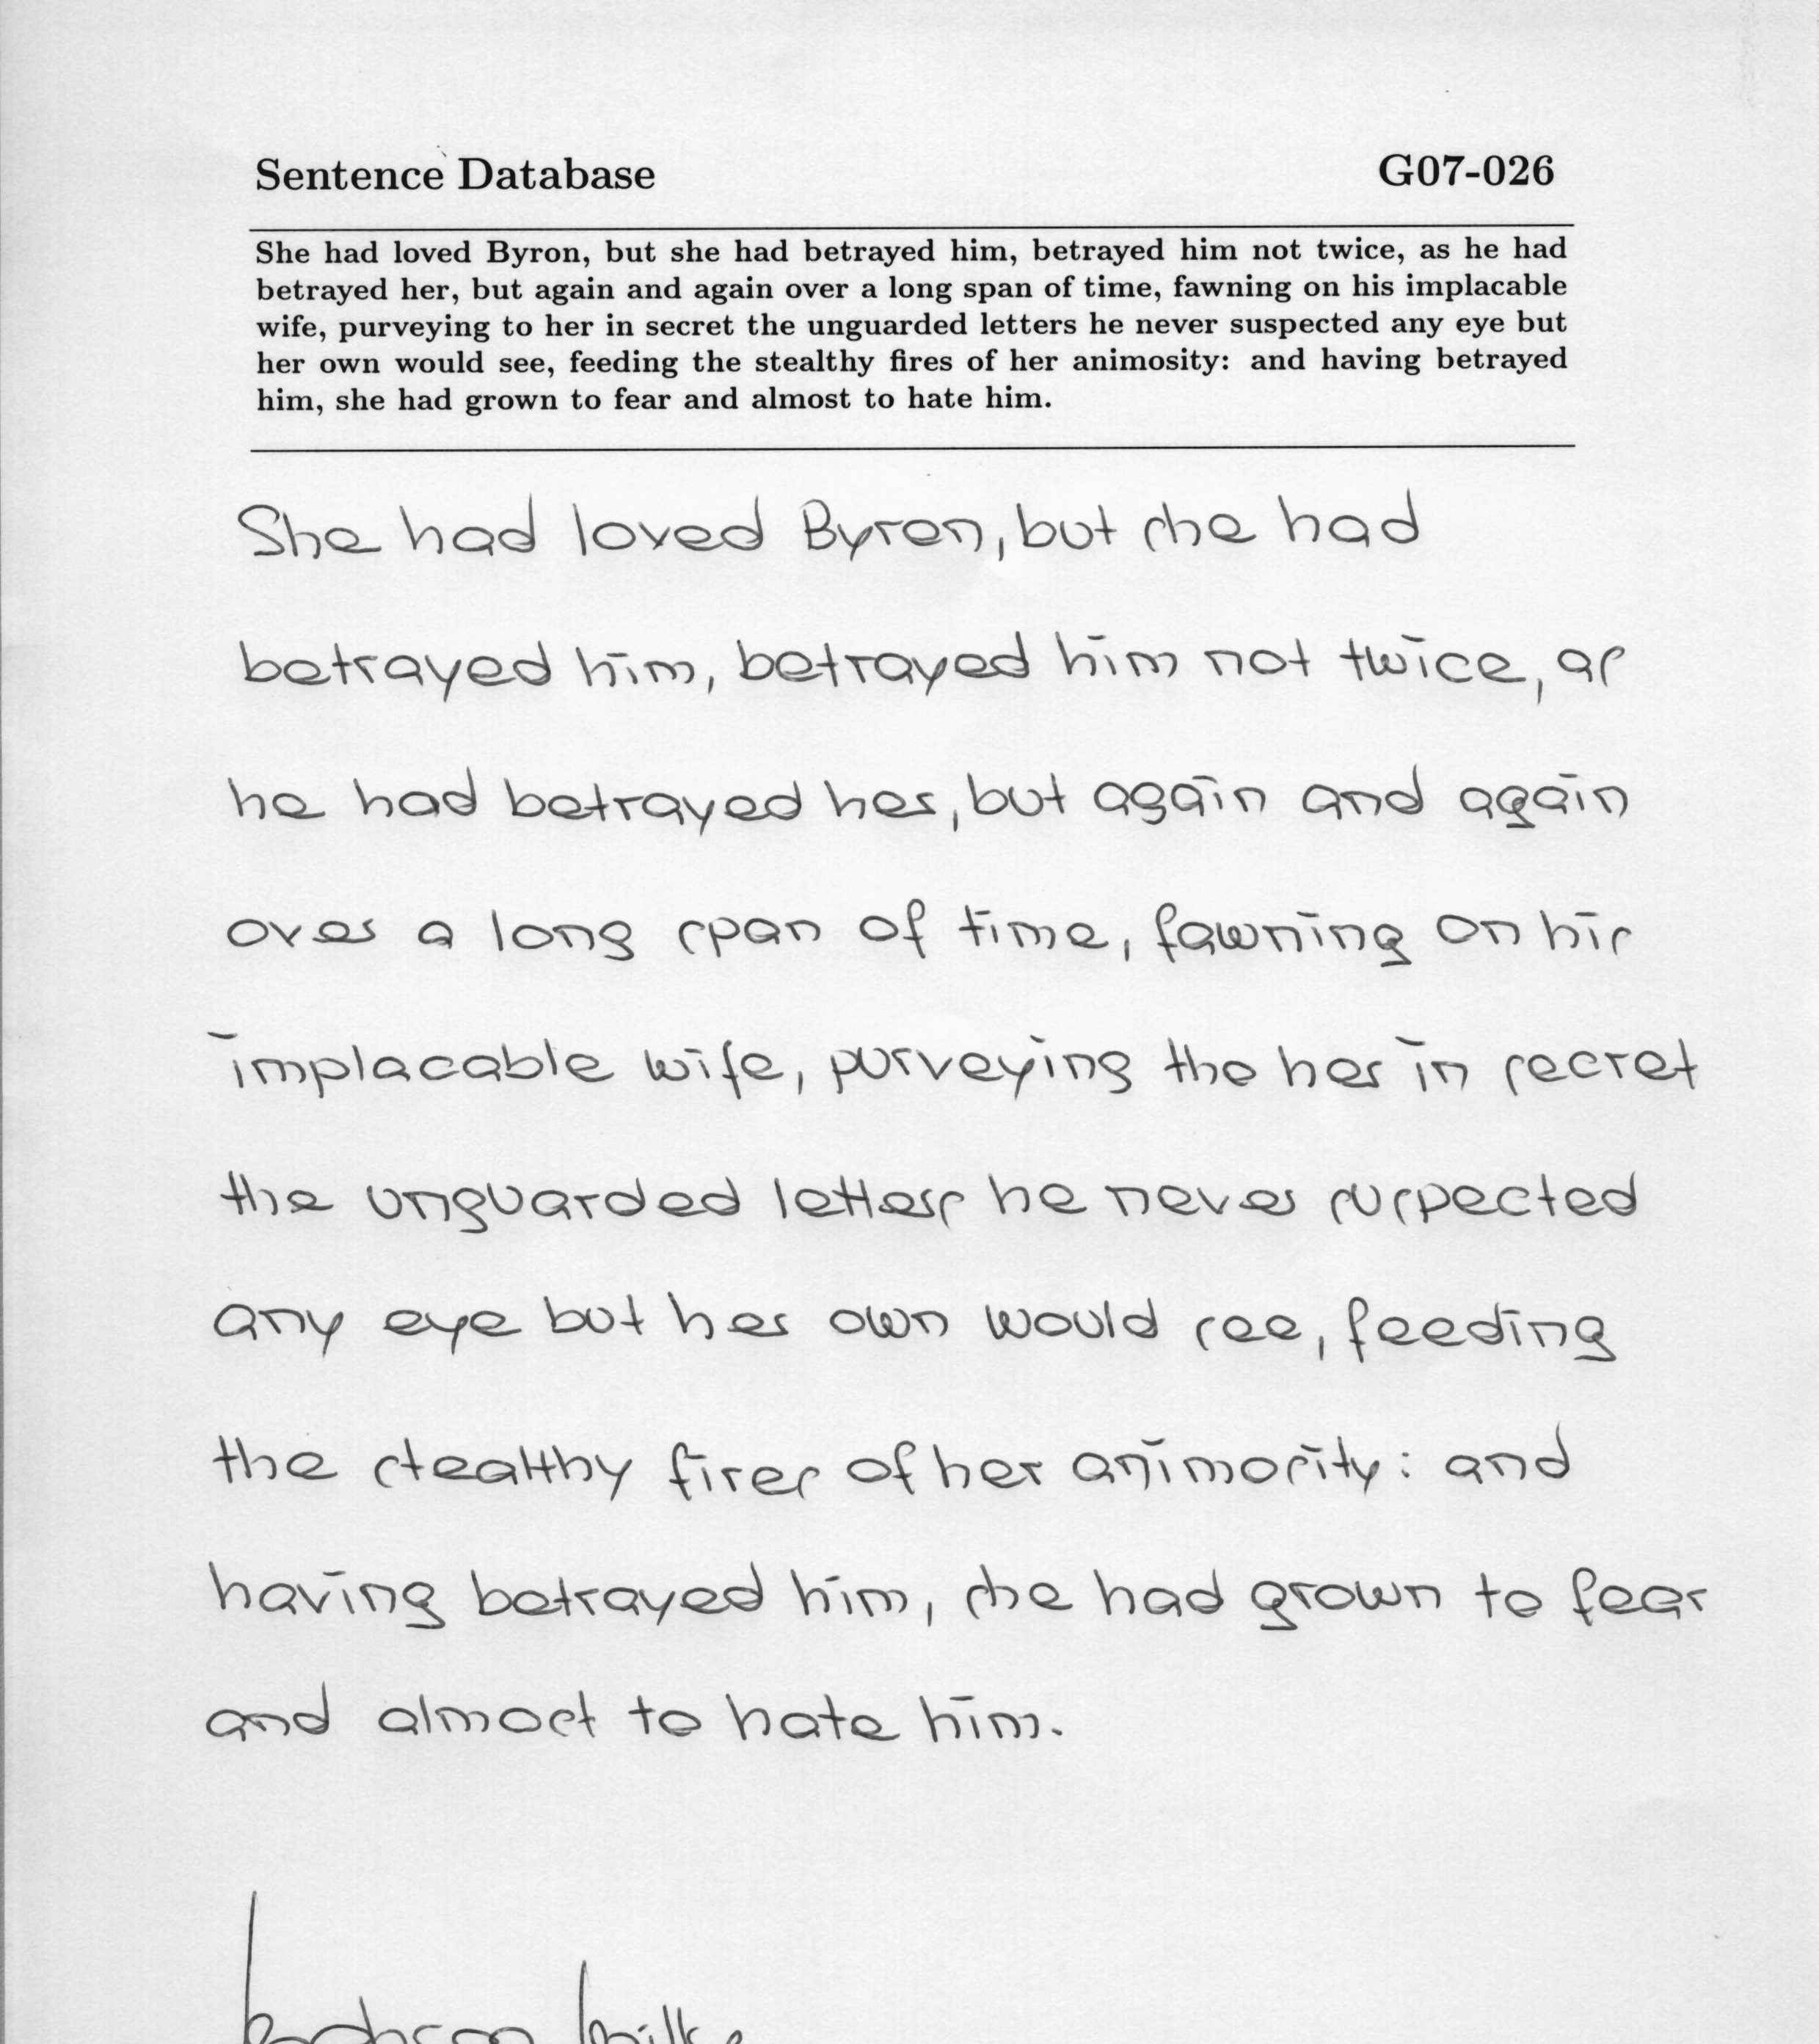 Sentence Database
G07-026
She had loved Byron, but she had betrayed him, betrayed him not twice, as he had
betrayed her, but again and again over a long span of time, fawning on his implacable
wife, purveying to her in secret the unguarded letters he never suspected any eye but
her own would see, feeding the stealthy fires of her animosity: and having betrayed
him, she had grown to fear and almost to hate him.
She had loved Byron, but she had
betrayed him, betrayed him not twice, as
he had betrayed her, but again and again
over a long span of time, fawning on his
implacable wife, purveying the her in secret
the unguarded letters he never suspected
any eye but her own would see, feeding
the stealthy fires of her animosity: and
having betrayed him, she had grown to fear
and almost to hate him.